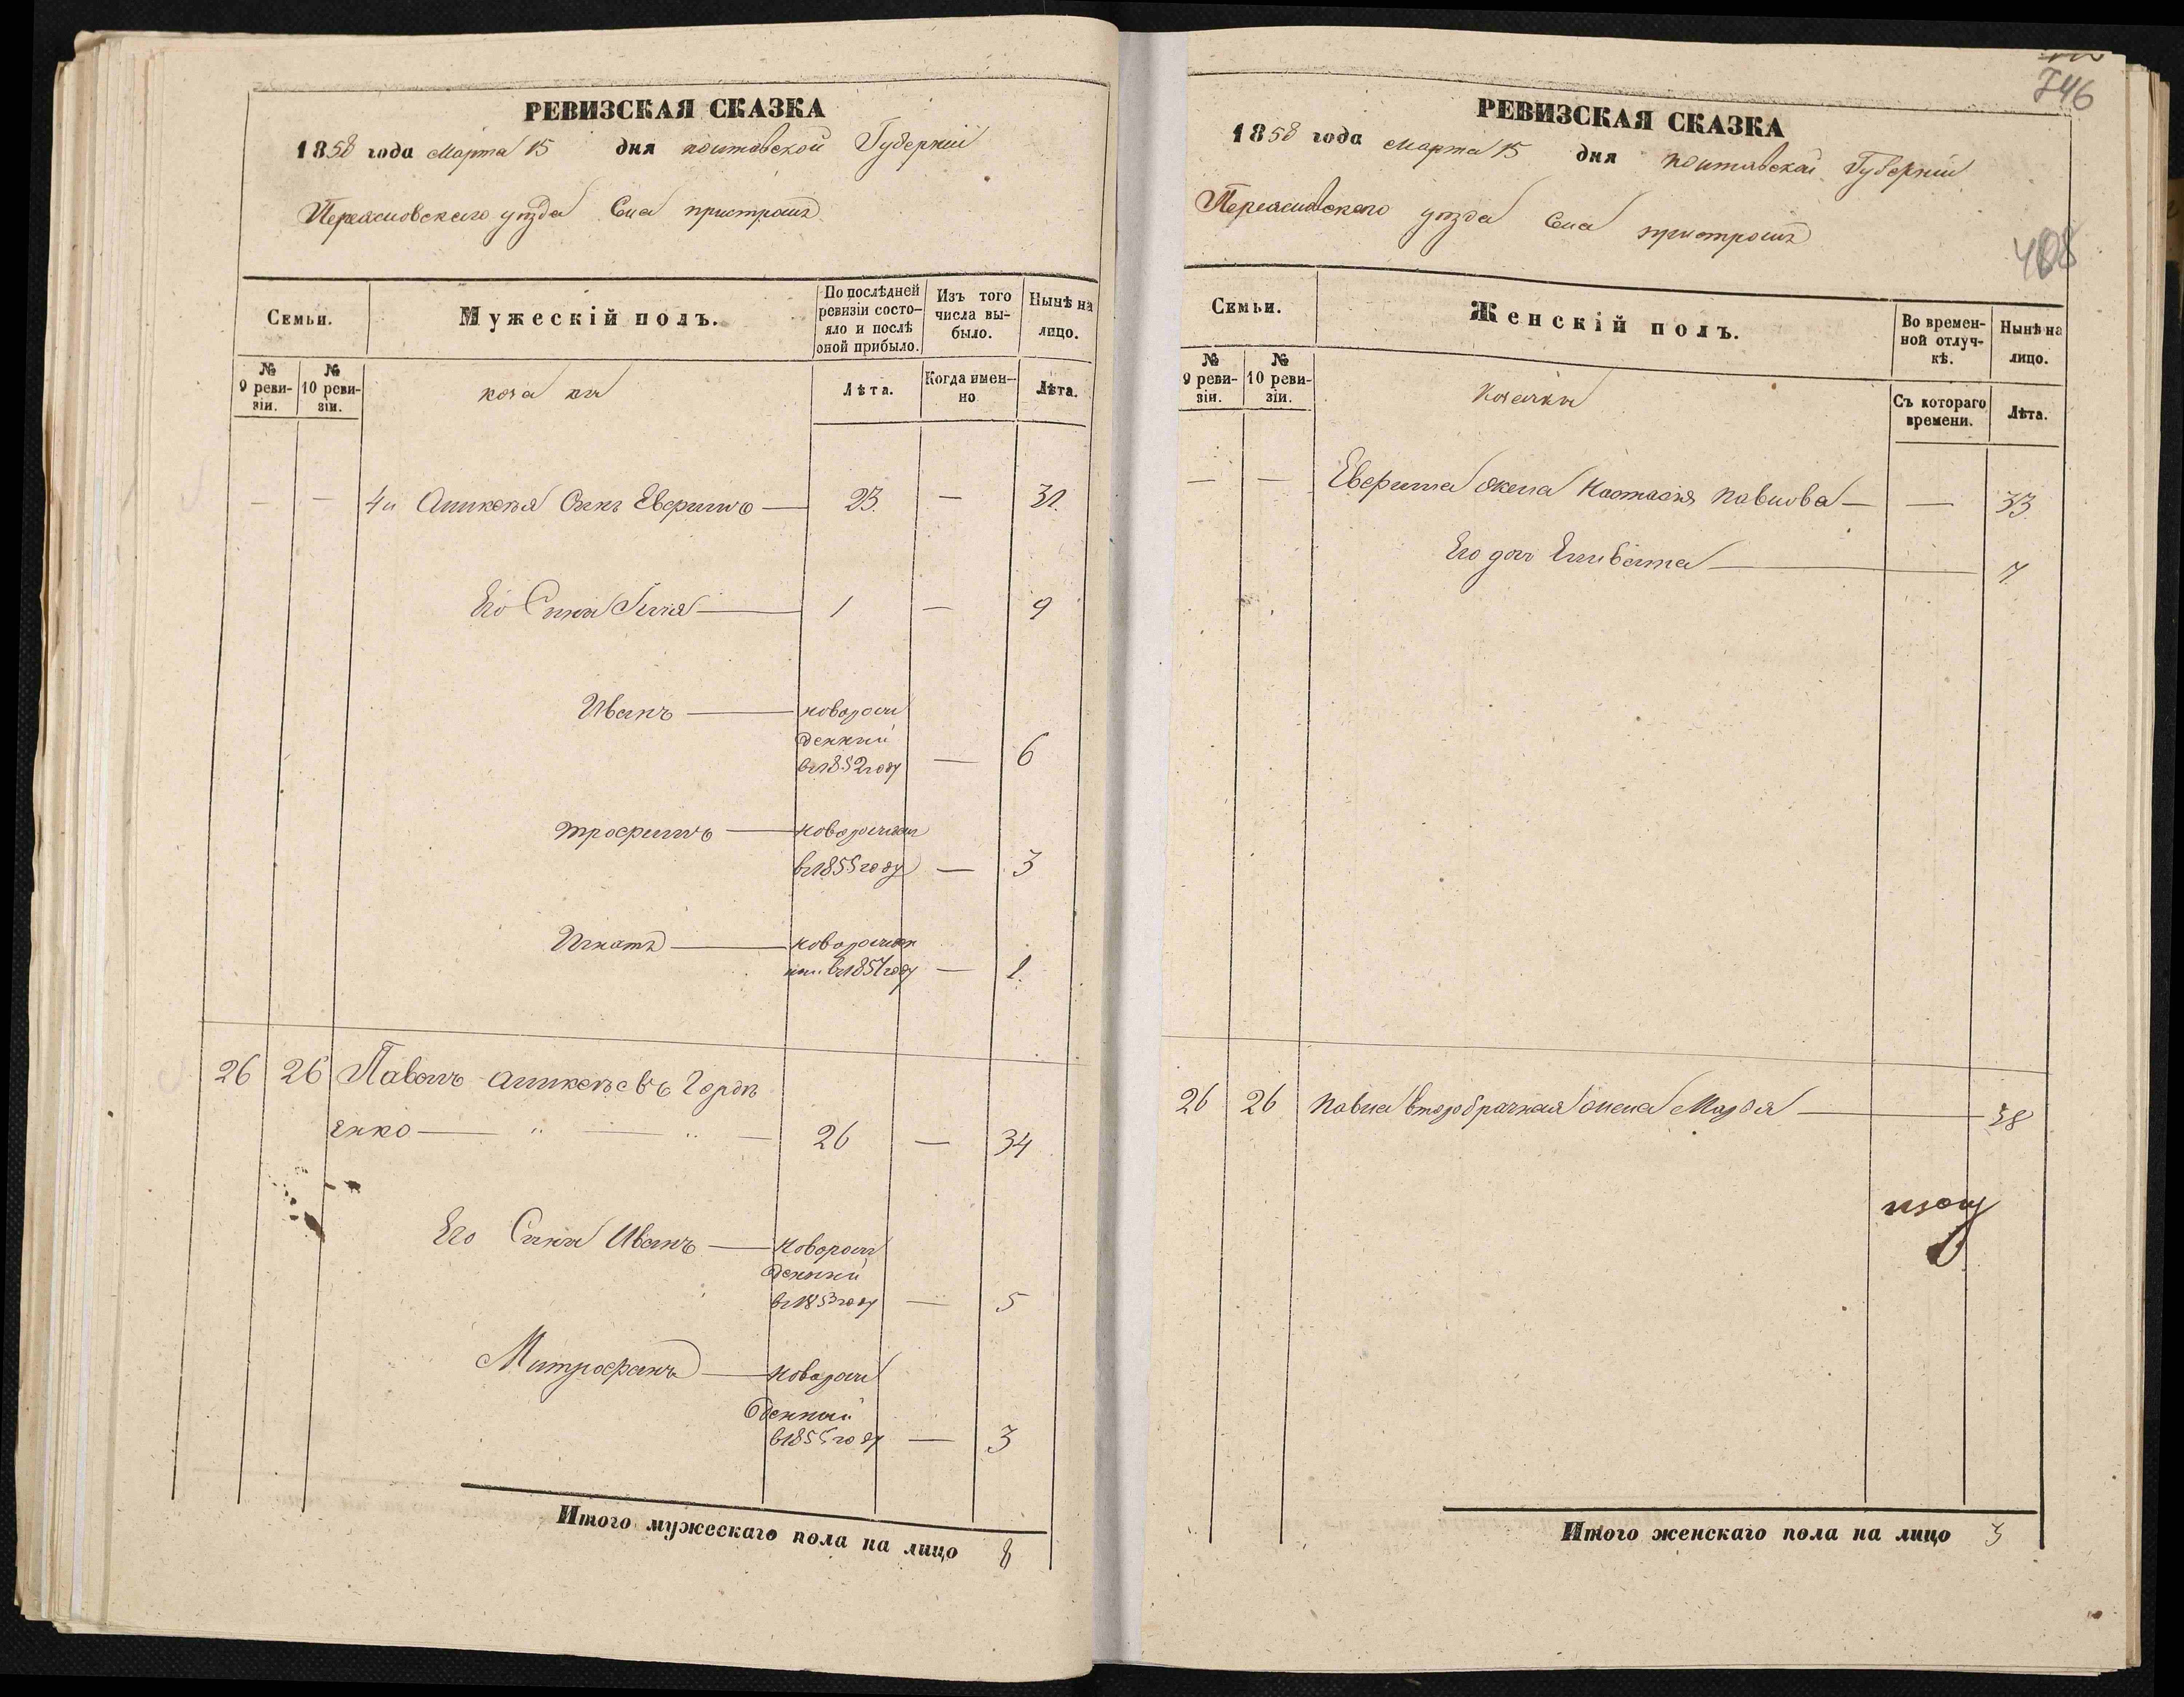 РЕВИЗСКАЯ СКАЗКА
1858 года Марта 15 дня полтавской Губернии
Переясловского уезда Села пристромъ
Семьи.
Мужескій полъ.
По послѣдней ревизіи состо-
яло и послѣ оной прибыло.
Изъ того числа вы-
было.
Нынѣ на лицо.
№ 9 реви-
зіи.
№ 10 реви-
зіи.
коза ки
Лѣта.
Когда имен-
но
Лѣта.
— — 4й Сынъ Ефримъ — 23 — 31
Его Сыны Илия — 1 — 9
Иванъ — новорож
денный
въ 1852 году — 6
трофимъ — новорожден
въ 1855 году — 3
Игнатъ — новорожден
ный въ 1857 году — 1
26 26 Павелъ Горде
енко — " — " — 26 — 34
Его Сыны Иванъ — новорож
денный
въ 1853 году — 5
Митрофанъ — новорож
денный
в 1855 году — 3
Итого мужескаго пола на лицо 8
746
408
РЕВИЗСКАЯ СКАЗКА
1858 года Марта 15 дня полтавской Губернии
Переясловского уезда Села пристромъ
Семьи.
Женскій полъ.
Во времен-
ной отлуч-
кѣ.
Нынѣ на лицо.
№ 9 реви-
зіи.
№ 10 реви-
зіи.
Козачки
Съ котораго времени.
Лѣта.
— — Ефрима жена Настасия павлова — — 33
Его доч Елисавета — 7
26 26 Павла второбрачная жена Марфа — 38
Итого женскаго пола на лицо 3